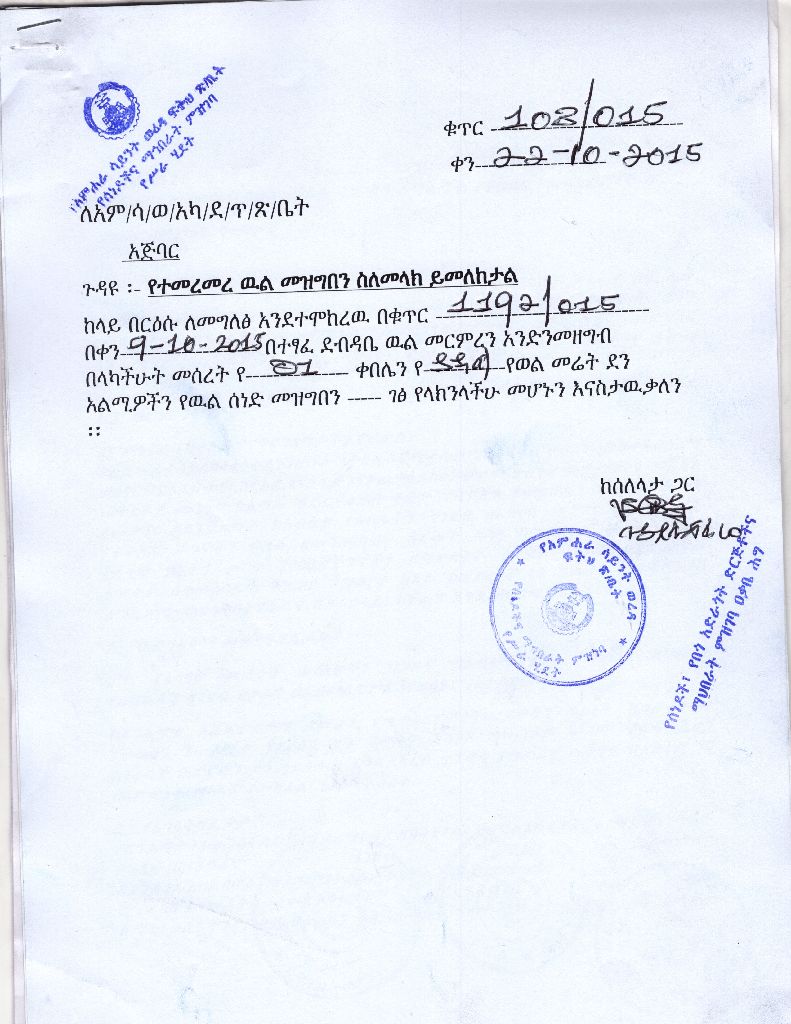 የአምሐራ ሳይንት ወረዳ ፍትህ ጽ/ቤት
የሰነዶችና ማኅበራት ምዝገባ
የሥራ ሂደት
ቁጥር 108/015
ቀን 22-10-2015
ለአም/ሳ/ወ/አካ/ደ/ጥ/ጽ/ቤት
አጅባር
ጉዳዩ ፡- የተመረመረ ዉል መዝግበን ስለመላክ ይመለከታል
ከላይ በርዕሱ ለመግለፅ እንደተሞከረዉ በቁጥር 1192/015
በቀን 9-10-2015 በተፃፈ ደብዳቤ ዉል መርምረን እንድንመዘግብ
በላካችሁት መሰረት የ 01 ቀበሌን የ የወል መሬት ደን
አልሚዎችን የዉል ሰነድ መዝግበን ----- ገፅ የላክንላችሁ መሆኑን እናስታዉቃለን
፡፡
ከሰለላታ ጋር
የአምሐራ ሳይንት ወረዳ
ፍትህ ጽ/ቤት
የሰነዶችና ማኅበራት ምዝገባ
የሥራ ሂደት